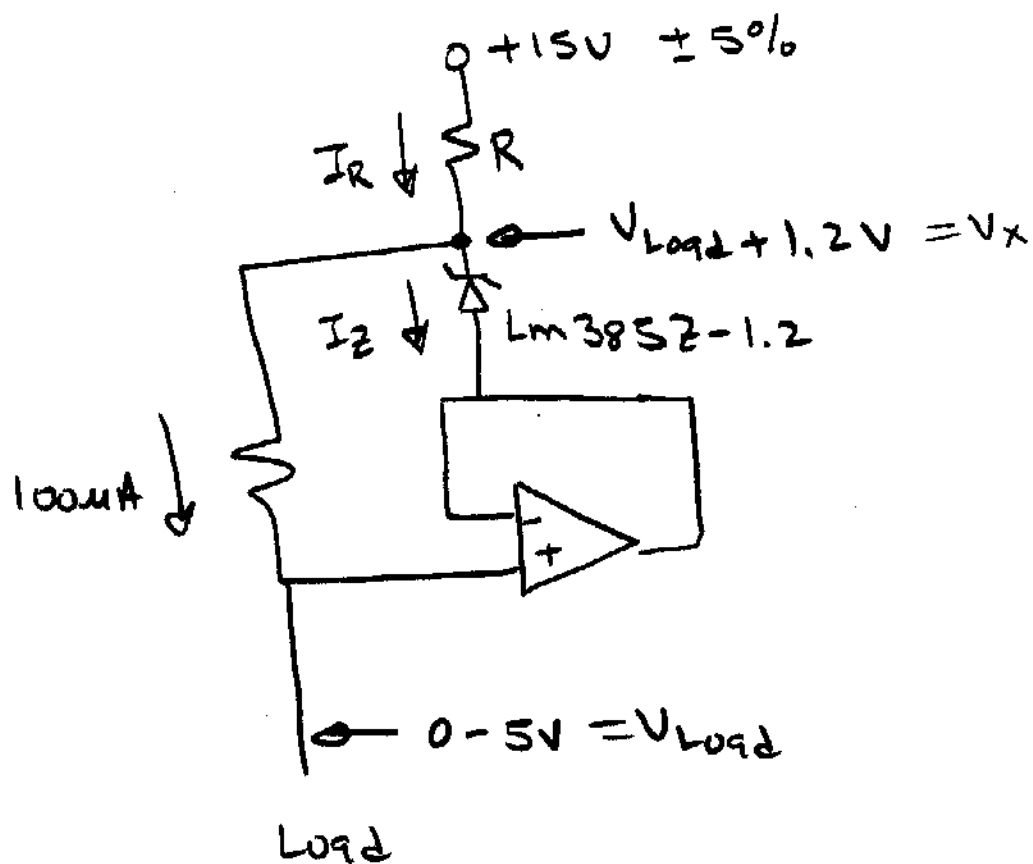 +15V ± 5%
I_R
R
V_Load + 1.2V = V_x
I_Z
Lm385Z-1.2
100uA
-
+
0-5V = V_Load
Load